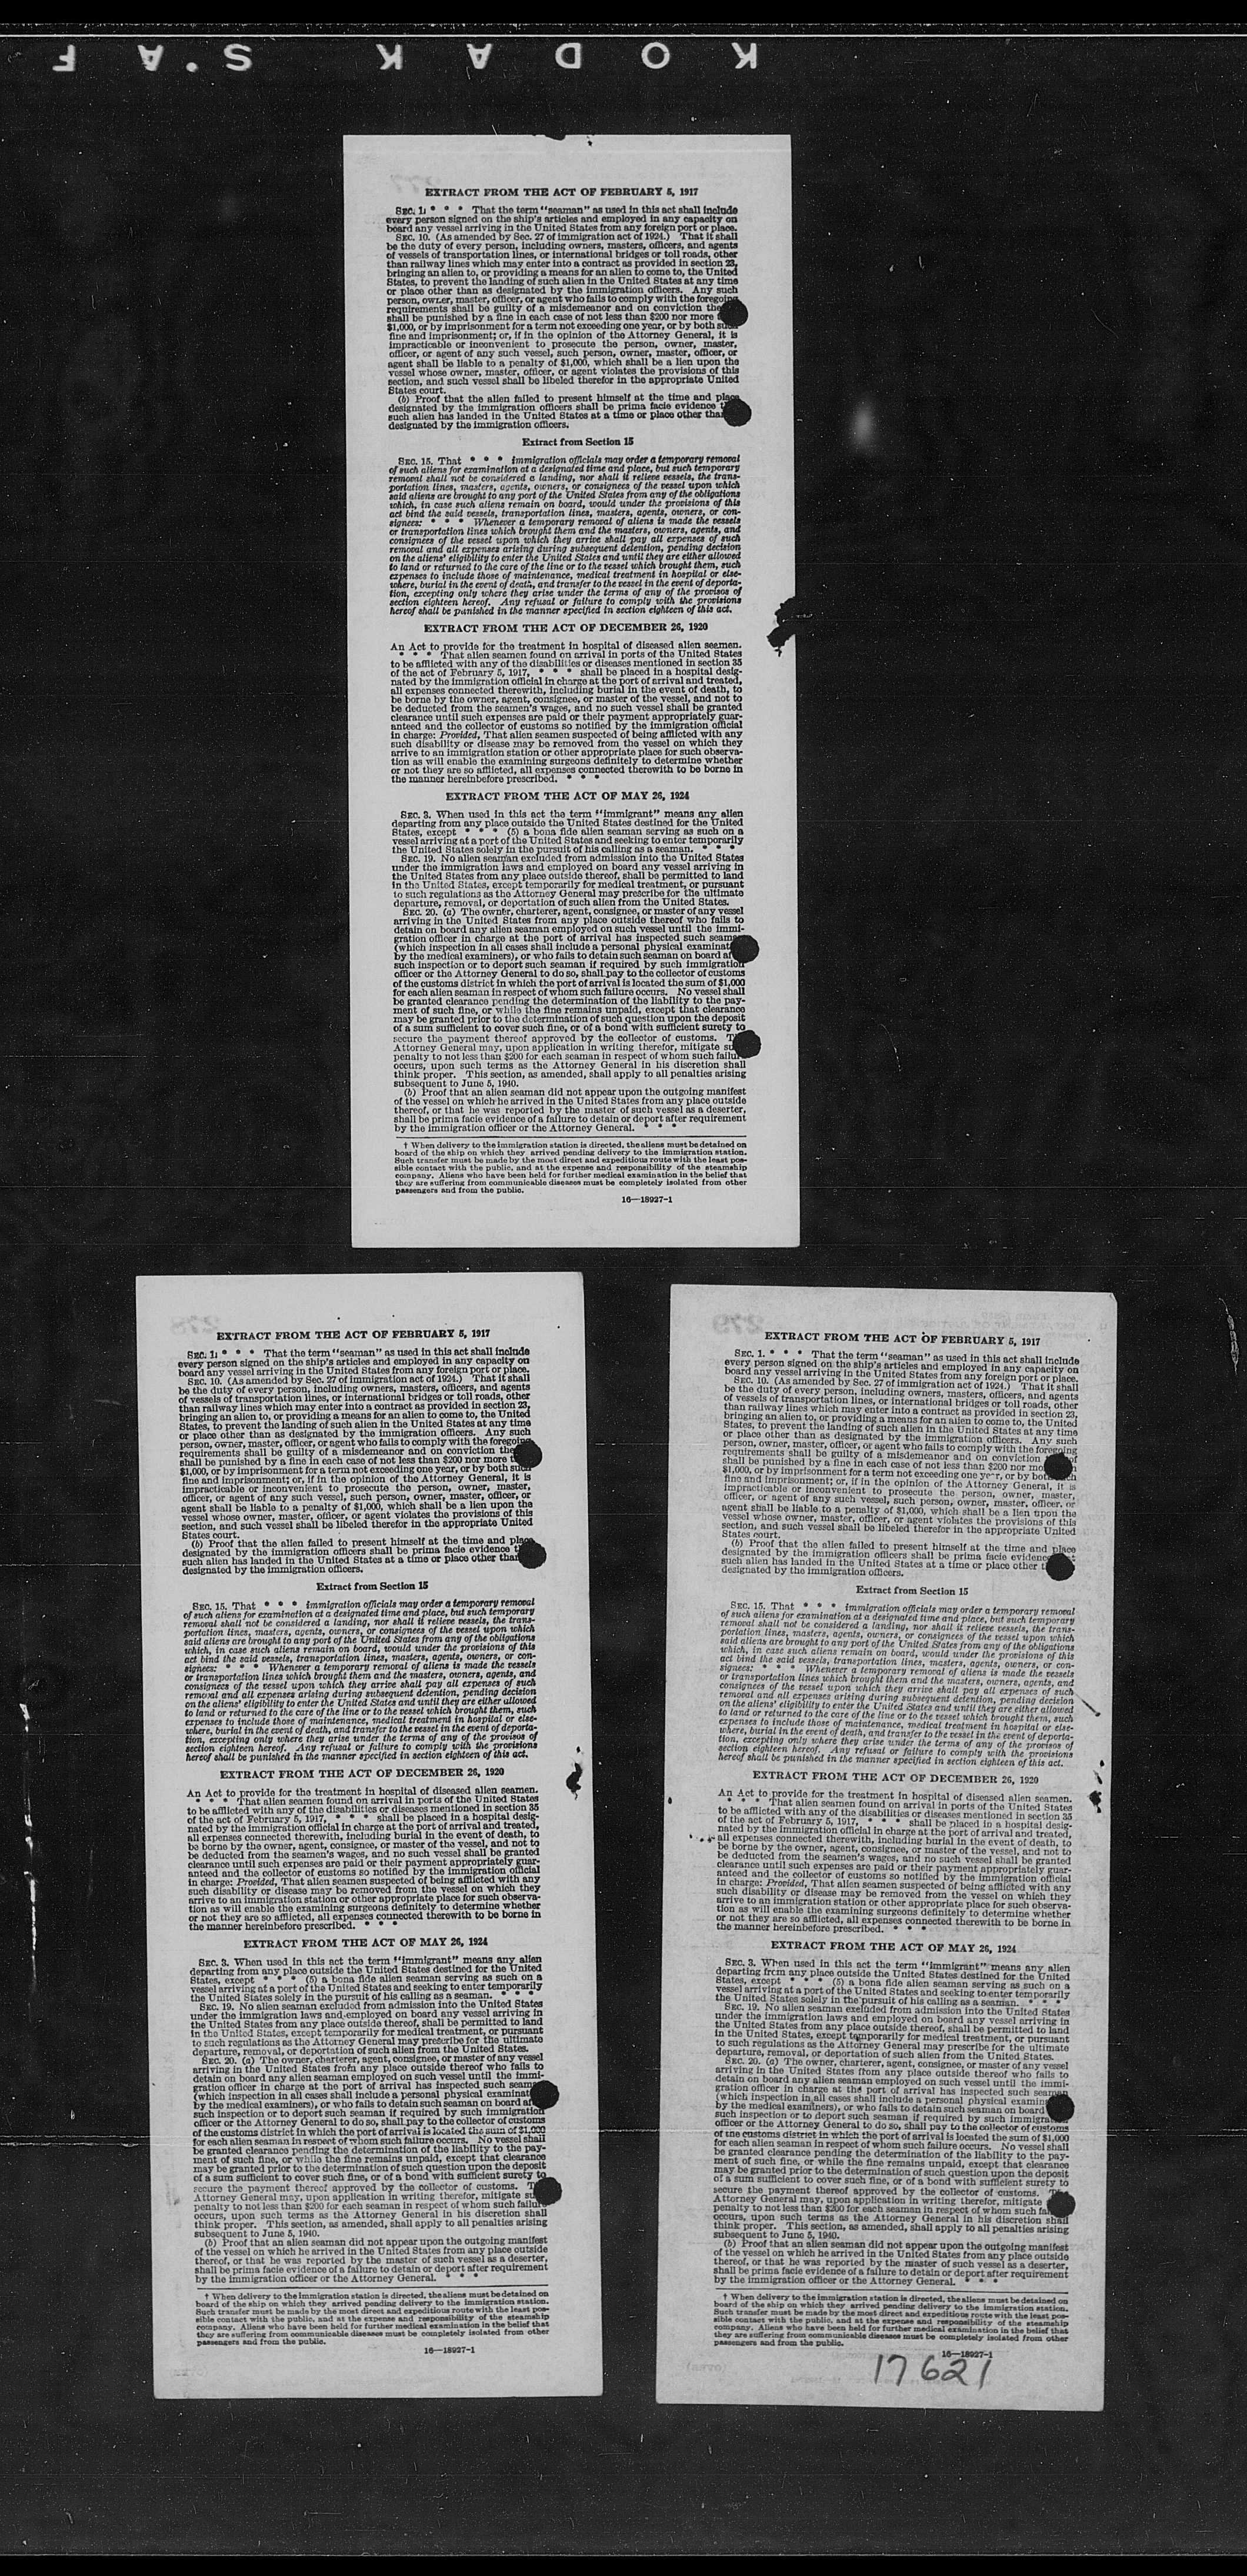 KODAK S.A F
EXTRACT FROM THE ACT OF FEBRUARY 5, 1917
SEC. 1. * * * That the term "seaman" as used in this act shall include
every person signed on the ship's articles and employed in any capacity on
board any vessel arriving in the United States from any foreign port or place.
SEC. 10. (As amended by Sec. 27 of immigration act of 1924.) That it shall
be the duty of every person, including owners, masters, officers, and agents
of vessels of transportation lines, or international bridges or toll roads, other
than railway lines which may enter into a contract as provided in section 23,
bringing an alien to, or providing a means for an alien to come to, the United
States, to prevent the landing of such alien in the United States at any time
or place other than as designated by the immigration officers. Any such
person, owner, master, officer, or agent who fails to comply with the foregoing
requirements shall be guilty of a misdemeanor and on conviction the
shall be punished by a fine in each case of not less than $200 nor more
$1,000, or by imprisonment for a term not exceeding one year, or by both such
fine and imprisonment; or, if in the opinion of the Attorney General, it is
impracticable or inconvenient to prosecute the person, owner, master,
officer, or agent of any such vessel, such person, owner, master, officer, or
agent shall be liable to a penalty of $1,000, which shall be a lien upon the
vessel whose owner, master, officer, or agent violates the provisions of this
section, and such vessel shall be libeled therefor in the appropriate United
States court.
(b) Proof that the alien failed to present himself at the time and place
designated by the immigration officers shall be prima facie evidence
such alien has landed in the United States at a time or place other than
designated by the immigration officers.
Extract from Section 15
SEC. 15. That * * * immigration officials may order a temporary removal
of such aliens for examination at a designated time and place, but such temporary
removal shall not be considered a landing, nor shall it relieve vessels, the trans-
portation lines, masters, agents, owners, or consignees of the vessel upon which
said aliens are brought to any port of the United States from any of the obligations
which, in case such aliens remain on board, would under the provisions of this
act bind the said vessels, transportation lines, masters, agents, owners, or con-
signees: * * * Whenever a temporary removal of aliens is made the vessels
or transportation lines which brought them and the masters, owners, agents, and
consignees of the vessel upon which they arrive shall pay all expenses of such
removal and all expenses arising during subsequent detention, pending decision
on the aliens' eligibility to enter the United States and until they are either allowed
to land or returned to the care of the line or to the vessel which brought them, such
expenses to include those of maintenance, medical treatment in hospital or else-
where, burial in the event of death, and transfer to the vessel in the event of deporta-
tion, excepting only where they arise under the terms of any of the provisos of
section eighteen hereof. Any refusal or failure to comply with the provisions
hereof shall be punished in the manner specified in section eighteen of this act.
EXTRACT FROM THE ACT OF DECEMBER 26, 1920
An Act to provide for the treatment in hospital of diseased alien seamen.
* * * That alien seamen found on arrival in ports of the United States
to be afflicted with any of the disabilities or diseases mentioned in section 35
of the act of February 5, 1917, * * * shall be placed in a hospital desig-
nated by the immigration official in charge at the port of arrival and treated,
all expenses connected therewith, including burial in the event of death, to
be borne by the owner, agent, consignee, or master of the vessel, and not to
be deducted from the seamen's wages, and no such vessel shall be granted
clearance until such expenses are paid or their payment appropriately guar-
anteed and the collector of customs so notified by the immigration official
in charge: Provided, That alien seamen suspected of being afflicted with any
such disability or disease may be removed from the vessel on which they
arrive to an immigration station or other appropriate place for such observa-
tion as will enable the examining surgeons definitely to determine whether
or not they are so afflicted, all expenses connected therewith to be borne in
the manner hereinbefore prescribed. * * *
EXTRACT FROM THE ACT OF MAY 26, 1924
SEC. 3. When used in this act the term "immigrant" means any alien
departing from any place outside the United States destined for the United
States, except * * * (5) a bona fide alien seaman serving as such on a
vessel arriving at a port of the United States and seeking to enter temporarily
the United States solely in the pursuit of his calling as a seaman. * * *
SEC. 19. No alien seaman excluded from admission into the United States
under the immigration laws and employed on board any vessel arriving in
the United States from any place outside thereof, shall be permitted to land
in the United States, except temporarily for medical treatment, or pursuant
to such regulations as the Attorney General may prescribe for the ultimate
departure, removal, or deportation of such alien from the United States.
SEC. 20. (a) The owner, charterer, agent, consignee, or master of any vessel
arriving in the United States from any place outside thereof who fails to
detain on board any alien seaman employed on such vessel until the immi-
gration officer in charge at the port of arrival has inspected such seaman
(which inspection in all cases shall include a personal physical examination
by the medical examiners), or who fails to detain such seaman on board
such inspection or to deport such seaman if required by such immigration
officer or the Attorney General to do so, shall pay to the collector of customs
of the customs district in which the port of arrival is located the sum of $1,000
for each alien seaman in respect of whom such failure occurs. No vessel shall
be granted clearance pending the determination of the liability to the pay-
ment of such fine, or while the fine remains unpaid, except that clearance
may be granted prior to the determination of such question upon the deposit
of a sum sufficient to cover such fine, or of a bond with sufficient surety to
secure the payment thereof approved by the collector of customs.
Attorney General may, upon application in writing therefor, mitigate
penalty to not less than $200 for each seaman in respect of whom such failure
occurs, upon such terms as the Attorney General in his discretion shall
think proper. This section, as amended, shall apply to all penalties arising
subsequent to June 5, 1940.
(b) Proof that an alien seaman did not appear upon the outgoing manifest
of the vessel on which he arrived in the United States from any place outside
thereof, or that he was reported by the master of such vessel as a deserter,
shall be prima facie evidence of a failure to detain or deport after requirement
by the immigration officer or the Attorney General. * * *
† When delivery to the immigration station is directed, the aliens must be detained on
board of the ship on which they arrived pending delivery to the immigration station.
Such transfer must be made by the most direct and expeditious route with the least pos-
sible contact with the public, and at the expense and responsibility of the steamship
company. Aliens who have been held for further medical examination in the belief that
they are suffering from communicable diseases must be completely isolated from other
passengers and from the public.
16—18927-1
EXTRACT FROM THE ACT OF FEBRUARY 5, 1917
SEC. 1. * * * That the term "seaman" as used in this act shall include
every person signed on the ship's articles and employed in any capacity on
board any vessel arriving in the United States from any foreign port or place.
SEC. 10. (As amended by Sec. 27 of immigration act of 1924.) That it shall
be the duty of every person, including owners, masters, officers, and agents
of vessels of transportation lines, or international bridges or toll roads, other
than railway lines which may enter into a contract as provided in section 23,
bringing an alien to, or providing a means for an alien to come to, the United
States, to prevent the landing of such alien in the United States at any time
or place other than as designated by the immigration officers. Any such
person, owner, master, officer, or agent who fails to comply with the foregoing
requirements shall be guilty of a misdemeanor and on conviction the
shall be punished by a fine in each case of not less than $200 nor more
$1,000, or by imprisonment for a term not exceeding one year, or by both such
fine and imprisonment; or, if in the opinion of the Attorney General, it is
impracticable or inconvenient to prosecute the person, owner, master,
officer, or agent of any such vessel, such person, owner, master, officer, or
agent shall be liable to a penalty of $1,000, which shall be a lien upon the
vessel whose owner, master, officer, or agent violates the provisions of this
section, and such vessel shall be libeled therefor in the appropriate United
States court.
(b) Proof that the alien failed to present himself at the time and place
designated by the immigration officers shall be prima facie evidence
such alien has landed in the United States at a time or place other than
designated by the immigration officers.
Extract from Section 15
SEC. 15. That * * * immigration officials may order a temporary removal
of such aliens for examination at a designated time and place, but such temporary
removal shall not be considered a landing, nor shall it relieve vessels, the trans-
portation lines, masters, agents, owners, or consignees of the vessel upon which
said aliens are brought to any port of the United States from any of the obligations
which, in case such aliens remain on board, would under the provisions of this
act bind the said vessels, transportation lines, masters, agents, owners, or con-
signees: * * * Whenever a temporary removal of aliens is made the vessels
or transportation lines which brought them and the masters, owners, agents, and
consignees of the vessel upon which they arrive shall pay all expenses of such
removal and all expenses arising during subsequent detention, pending decision
on the aliens' eligibility to enter the United States and until they are either allowed
to land or returned to the care of the line or to the vessel which brought them, such
expenses to include those of maintenance, medical treatment in hospital or else-
where, burial in the event of death, and transfer to the vessel in the event of deporta-
tion, excepting only where they arise under the terms of any of the provisos of
section eighteen hereof. Any refusal or failure to comply with the provisions
hereof shall be punished in the manner specified in section eighteen of this act.
EXTRACT FROM THE ACT OF DECEMBER 26, 1920
An Act to provide for the treatment in hospital of diseased alien seamen.
* * * That alien seamen found on arrival in ports of the United States
to be afflicted with any of the disabilities or diseases mentioned in section 35
of the act of February 5, 1917, * * * shall be placed in a hospital desig-
nated by the immigration official in charge at the port of arrival and treated,
all expenses connected therewith, including burial in the event of death, to
be borne by the owner, agent, consignee, or master of the vessel, and not to
be deducted from the seamen's wages, and no such vessel shall be granted
clearance until such expenses are paid or their payment appropriately guar-
anteed and the collector of customs so notified by the immigration official
in charge: Provided, That alien seamen suspected of being afflicted with any
such disability or disease may be removed from the vessel on which they
arrive to an immigration station or other appropriate place for such observa-
tion as will enable the examining surgeons definitely to determine whether
or not they are so afflicted, all expenses connected therewith to be borne in
the manner hereinbefore prescribed. * * *
EXTRACT FROM THE ACT OF MAY 26, 1924
SEC. 3. When used in this act the term "immigrant" means any alien
departing from any place outside the United States destined for the United
States, except * * * (5) a bona fide alien seaman serving as such on a
vessel arriving at a port of the United States and seeking to enter temporarily
the United States solely in the pursuit of his calling as a seaman. * * *
SEC. 19. No alien seaman excluded from admission into the United States
under the immigration laws and employed on board any vessel arriving in
the United States from any place outside thereof, shall be permitted to land
in the United States, except temporarily for medical treatment, or pursuant
to such regulations as the Attorney General may prescribe for the ultimate
departure, removal, or deportation of such alien from the United States.
SEC. 20. (a) The owner, charterer, agent, consignee, or master of any vessel
arriving in the United States from any place outside thereof who fails to
detain on board any alien seaman employed on such vessel until the immi-
gration officer in charge at the port of arrival has inspected such seaman
(which inspection in all cases shall include a personal physical examination
by the medical examiners), or who fails to detain such seaman on board
such inspection or to deport such seaman if required by such immigration
officer or the Attorney General to do so, shall pay to the collector of customs
of the customs district in which the port of arrival is located the sum of $1,000
for each alien seaman in respect of whom such failure occurs. No vessel shall
be granted clearance pending the determination of the liability to the pay-
ment of such fine, or while the fine remains unpaid, except that clearance
may be granted prior to the determination of such question upon the deposit
of a sum sufficient to cover such fine, or of a bond with sufficient surety to
secure the payment thereof approved by the collector of customs.
Attorney General may, upon application in writing therefor, mitigate
penalty to not less than $200 for each seaman in respect of whom such failure
occurs, upon such terms as the Attorney General in his discretion shall
think proper. This section, as amended, shall apply to all penalties arising
subsequent to June 5, 1940.
(b) Proof that an alien seaman did not appear upon the outgoing manifest
of the vessel on which he arrived in the United States from any place outside
thereof, or that he was reported by the master of such vessel as a deserter,
shall be prima facie evidence of a failure to detain or deport after requirement
by the immigration officer or the Attorney General. * * *
† When delivery to the immigration station is directed, the aliens must be detained on
board of the ship on which they arrived pending delivery to the immigration station.
Such transfer must be made by the most direct and expeditious route with the least pos-
sible contact with the public, and at the expense and responsibility of the steamship
company. Aliens who have been held for further medical examination in the belief that
they are suffering from communicable diseases must be completely isolated from other
passengers and from the public.
16—18927-1
EXTRACT FROM THE ACT OF FEBRUARY 5, 1917
SEC. 1. * * * That the term "seaman" as used in this act shall include
every person signed on the ship's articles and employed in any capacity on
board any vessel arriving in the United States from any foreign port or place.
SEC. 10. (As amended by Sec. 27 of immigration act of 1924.) That it shall
be the duty of every person, including owners, masters, officers, and agents
of vessels of transportation lines, or international bridges or toll roads, other
than railway lines which may enter into a contract as provided in section 23,
bringing an alien to, or providing a means for an alien to come to, the United
States, to prevent the landing of such alien in the United States at any time
or place other than as designated by the immigration officers. Any such
person, owner, master, officer, or agent who fails to comply with the foregoing
requirements shall be guilty of a misdemeanor and on conviction
shall be punished by a fine in each case of not less than $200 nor
$1,000, or by imprisonment for a term not exceeding one year, or by both
fine and imprisonment; or, if in the opinion of the Attorney General, it is
impracticable or inconvenient to prosecute the person, owner, master,
officer, or agent of any such vessel, such person, owner, master, officer, or
agent shall be liable to a penalty of $1,000, which shall be a lien upon the
vessel whose owner, master, officer, or agent violates the provisions of this
section, and such vessel shall be libeled therefor in the appropriate United
States court.
(b) Proof that the alien failed to present himself at the time and place
designated by the immigration officers shall be prima facie evidence
such alien has landed in the United States at a time or place other
designated by the immigration officers.
Extract from Section 15
SEC. 15. That * * * immigration officials may order a temporary removal
of such aliens for examination at a designated time and place, but such temporary
removal shall not be considered a landing, nor shall it relieve vessels, the trans-
portation lines, masters, agents, owners, or consignees of the vessel upon which
said aliens are brought to any port of the United States from any of the obligations
which, in case such aliens remain on board, would under the provisions of this
act bind the said vessels, transportation lines, masters, agents, owners, or con-
signees: * * * Whenever a temporary removal of aliens is made the vessels
or transportation lines which brought them and the masters, owners, agents, and
consignees of the vessel upon which they arrive shall pay all expenses of such
removal and all expenses arising during subsequent detention, pending decision
on the aliens' eligibility to enter the United States and until they are either allowed
to land or returned to the care of the line or to the vessel which brought them, such
expenses to include those of maintenance, medical treatment in hospital or else-
where, burial in the event of death, and transfer to the vessel in the event of deporta-
tion, excepting only where they arise under the terms of any of the provisos of
section eighteen hereof. Any refusal or failure to comply with the provisions
hereof shall be punished in the manner specified in section eighteen of this act.
EXTRACT FROM THE ACT OF DECEMBER 26, 1920
An Act to provide for the treatment in hospital of diseased alien seamen.
* * * That alien seamen found on arrival in ports of the United States
to be afflicted with any of the disabilities or diseases mentioned in section 35
of the act of February 5, 1917, * * * shall be placed in a hospital desig-
nated by the immigration official in charge at the port of arrival and treated,
all expenses connected therewith, including burial in the event of death, to
be borne by the owner, agent, consignee, or master of the vessel, and not to
be deducted from the seamen's wages, and no such vessel shall be granted
clearance until such expenses are paid or their payment appropriately guar-
anteed and the collector of customs so notified by the immigration official
in charge: Provided, That alien seamen suspected of being afflicted with any
such disability or disease may be removed from the vessel on which they
arrive to an immigration station or other appropriate place for such observa-
tion as will enable the examining surgeons definitely to determine whether
or not they are so afflicted, all expenses connected therewith to be borne in
the manner hereinbefore prescribed. * * *
EXTRACT FROM THE ACT OF MAY 26, 1924
SEC. 3. When used in this act the term "immigrant" means any alien
departing from any place outside the United States destined for the United
States, except * * * (5) a bona fide alien seaman serving as such on a
vessel arriving at a port of the United States and seeking to enter temporarily
the United States solely in the pursuit of his calling as a seaman. * * *
SEC. 19. No alien seaman excluded from admission into the United States
under the immigration laws and employed on board any vessel arriving in
the United States from any place outside thereof, shall be permitted to land
in the United States, except temporarily for medical treatment, or pursuant
to such regulations as the Attorney General may prescribe for the ultimate
departure, removal, or deportation of such alien from the United States.
SEC. 20. (a) The owner, charterer, agent, consignee, or master of any vessel
arriving in the United States from any place outside thereof who fails to
detain on board any alien seaman employed on such vessel until the immi-
gration officer in charge at the port of arrival has inspected such seaman
(which inspection in all cases shall include a personal physical
by the medical examiners), or who fails to detain such seaman on board
such inspection or to deport such seaman if required by such immigration
officer or the Attorney General to do so, shall pay to the collector of customs
of the customs district in which the port of arrival is located the sum of $1,000
for each alien seaman in respect of whom such failure occurs. No vessel shall
be granted clearance pending the determination of the liability to the pay-
ment of such fine, or while the fine remains unpaid, except that clearance
may be granted prior to the determination of such question upon the deposit
of a sum sufficient to cover such fine, or of a bond with sufficient surety to
secure the payment thereof approved by the collector of customs. The
Attorney General may, upon application in writing therefor, mitigate
penalty to not less than $200 for each seaman in respect of whom such
occurs, upon such terms as the Attorney General in his discretion shall
think proper. This section, as amended, shall apply to all penalties arising
subsequent to June 5, 1940.
(b) Proof that an alien seaman did not appear upon the outgoing manifest
of the vessel on which he arrived in the United States from any place outside
thereof, or that he was reported by the master of such vessel as a deserter,
shall be prima facie evidence of a failure to detain or deport after requirement
by the immigration officer or the Attorney General. * * *
† When delivery to the immigration station is directed, the aliens must be detained on
board of the ship on which they arrived pending delivery to the immigration station.
Such transfer must be made by the most direct and expeditious route with the least pos-
sible contact with the public, and at the expense and responsibility of the steamship
company. Aliens who have been held for further medical examination in the belief that
they are suffering from communicable diseases must be completely isolated from other
passengers and from the public.
16—18927-1
17621